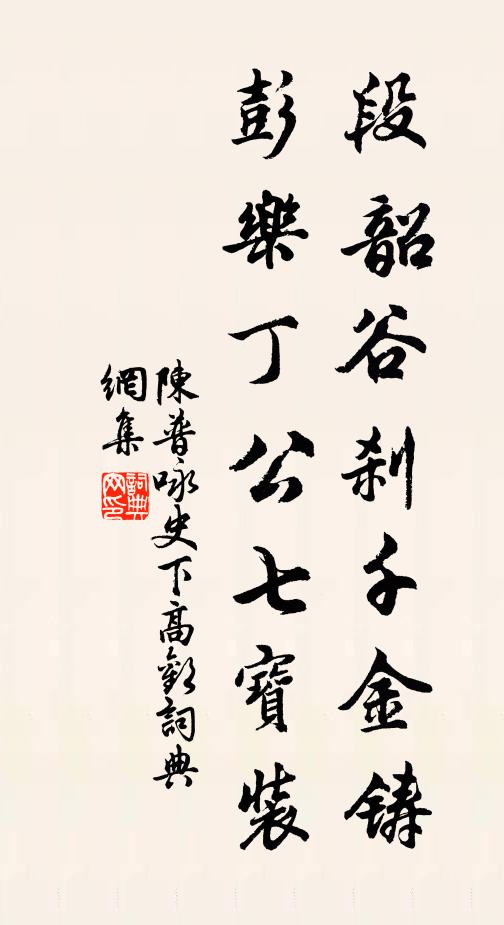 段韶谷刹千金鑄
彭樂丁公七寶裝
陳普咏史下高歡詞典
網集
詞典網印